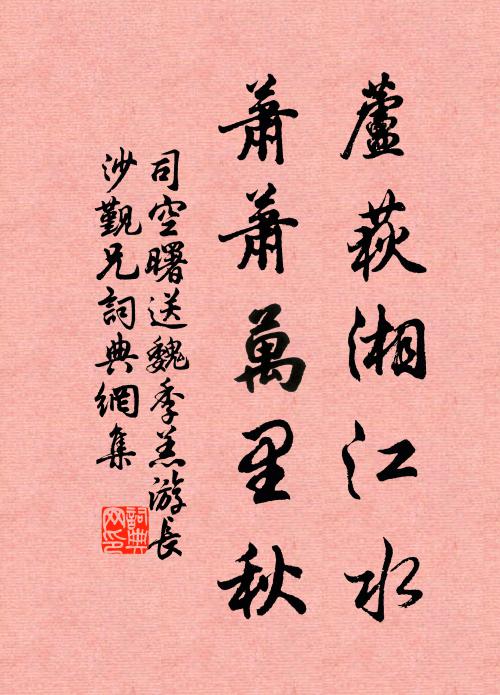 蘆荻湘江水
蕭蕭萬里秋
司空曙送魏季羔游長
沙覲兄詞典網集
詞典网印